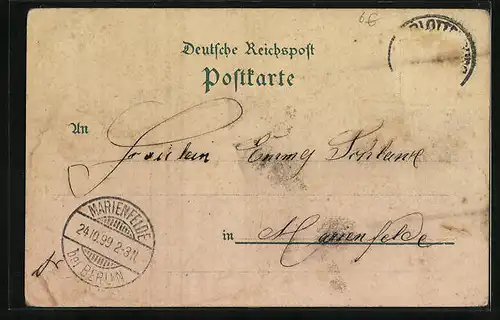 6€
Deutsche Reichspost
Postkarte
An
Fräulein Emmy
in Marienfelde
MARIENFELDE
24.10.99.2-3.N.
bei BERLIN